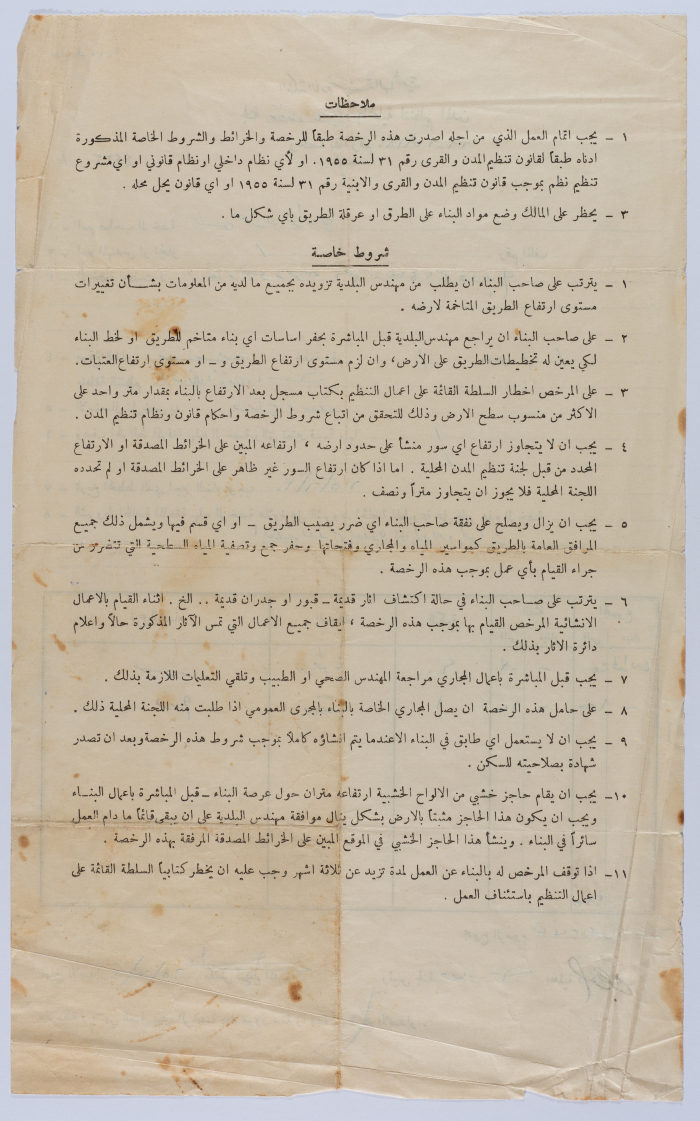 ملاحظات
١ - يجب اتمام العمل الذي من اجله اصدرت هذه الرخصة طبقاً للرخصة والخرائط والشروط الخاصة المذكورة
ادناه طبقاً لقانون تنظيم المدن والقرى رقم ٣١ لسنة ١٩٥٥، او لأي نظام داخلي او نظام قانوني او اي مشروع
تنظيم نظم بموجب قانون تنظيم المدن والقرى والابنية رقم ٣١ لسنة ١٩٥٥ او اي قانون يحل محله .
٣ - يحظر على المالك وضع مواد البناء على الطرق او عرقلة الطريق باي شكل ما .
شروط خاصة
١ - يترتب على صاحب البناء ان يطلب من مهندس البلدية تزويده بجميع ما لديه من المعلومات بشأن تغييرات
مستوى ارتفاع الطريق المتاخمة لارضه .
٢ - على صاحب البناء ان يراجع مهندس البلدية قبل المباشرة بحفر اساسات اي بناء متاخم للطريق او لخط البناء
لكي يعين له تخطيطات الطريق على الارض، وان لزم مستوى ارتفاع الطريق و - او مستوى ارتفاع العتبات.
٣ - على المرخص اخطار السلطة القائمة على اعمال التنظيم بكتاب مسجل بعد الارتفاع بالبناء بمقدار متر واحد على
الاكثر من منسوب سطح الارض وذلك للتحقق من اتباع شروط الرخصة واحكام قانون ونظام تنظيم المدن .
٤ - يجب ان لا يتجاوز ارتفاع اي سور منشأ على حدود ارضه ، ارتفاعه المبين على الخرائط المصدقة او الارتفاع
المحدد من قبل لجنة تنظيم المدن المحلية . اما اذا كان ارتفاع السور غير ظاهر على الخرائط المصدقة او لم تحدده
اللجنة المحلية فلا يجوز ان يتجاوز متراً ونصف .
٥ - يجب ان يزال ويصلح على نفقة صاحب البناء اي ضرر يصيب الطريق - او اي قسم فيها ويشمل ذلك جميع
المرافق العامة بالطريق كمواسير المياه والمجاري وفتحاتها وحفر جمع وتصفية المياه السطحية التي تتضرر من
جراء القيام بأي عمل بموجب هذه الرخصة .
٦ - يترتب على صاحب البناء في حالة اكتشاف اثار قديمة - قبور او جدران قديمة .. الخ . اثناء القيام بالاعمال
الانشائية المرخص القيام بها بموجب هذه الرخصة ، ايقاف جميع الاعمال التي تمس الآثار المذكورة حالاً واعلام
دائرة الاثار بذلك .
٧ - يجب قبل المباشرة باعمال المجاري مراجعة المهندس الصحي او الطبيب وتلقي التعليمات اللازمة بذلك .
٨ - على حامل هذه الرخصة ان يصل المجاري الخاصة بالبناء بالمجرى العمومي اذا طلبت منه اللجنة المحلية ذلك .
٩ - يجب ان لا يستعمل اي طابق في البناء الا عندما يتم انشاؤه كاملاً بموجب شروط هذه الرخصة وبعد ان تصدر
شهادة بصلاحيته للسكن .
١٠ - يجب ان يقام حاجز خشبي من الالواح الخشبية ارتفاعه متران حول عرصة البناء - قبل المباشرة باعمال البناء
ويجب ان يكون هذا الحاجز مثبتاً بالارض بشكل ينال موافقة مهندس البلدية على ان يبقى قائماً ما دام العمل
سائراً في البناء . وينشأ هذا الحاجز الخشبي في الموقع المبين على الخرائط المصدقة المرفقة بهذه الرخصة .
١١ - اذا توقف المرخص له بالبناء عن العمل لمدة تزيد عن ثلاثة اشهر وجب عليه ان يخطر كتابياً السلطة القائمة على
اعمال التنظيم باستئناف العمل .